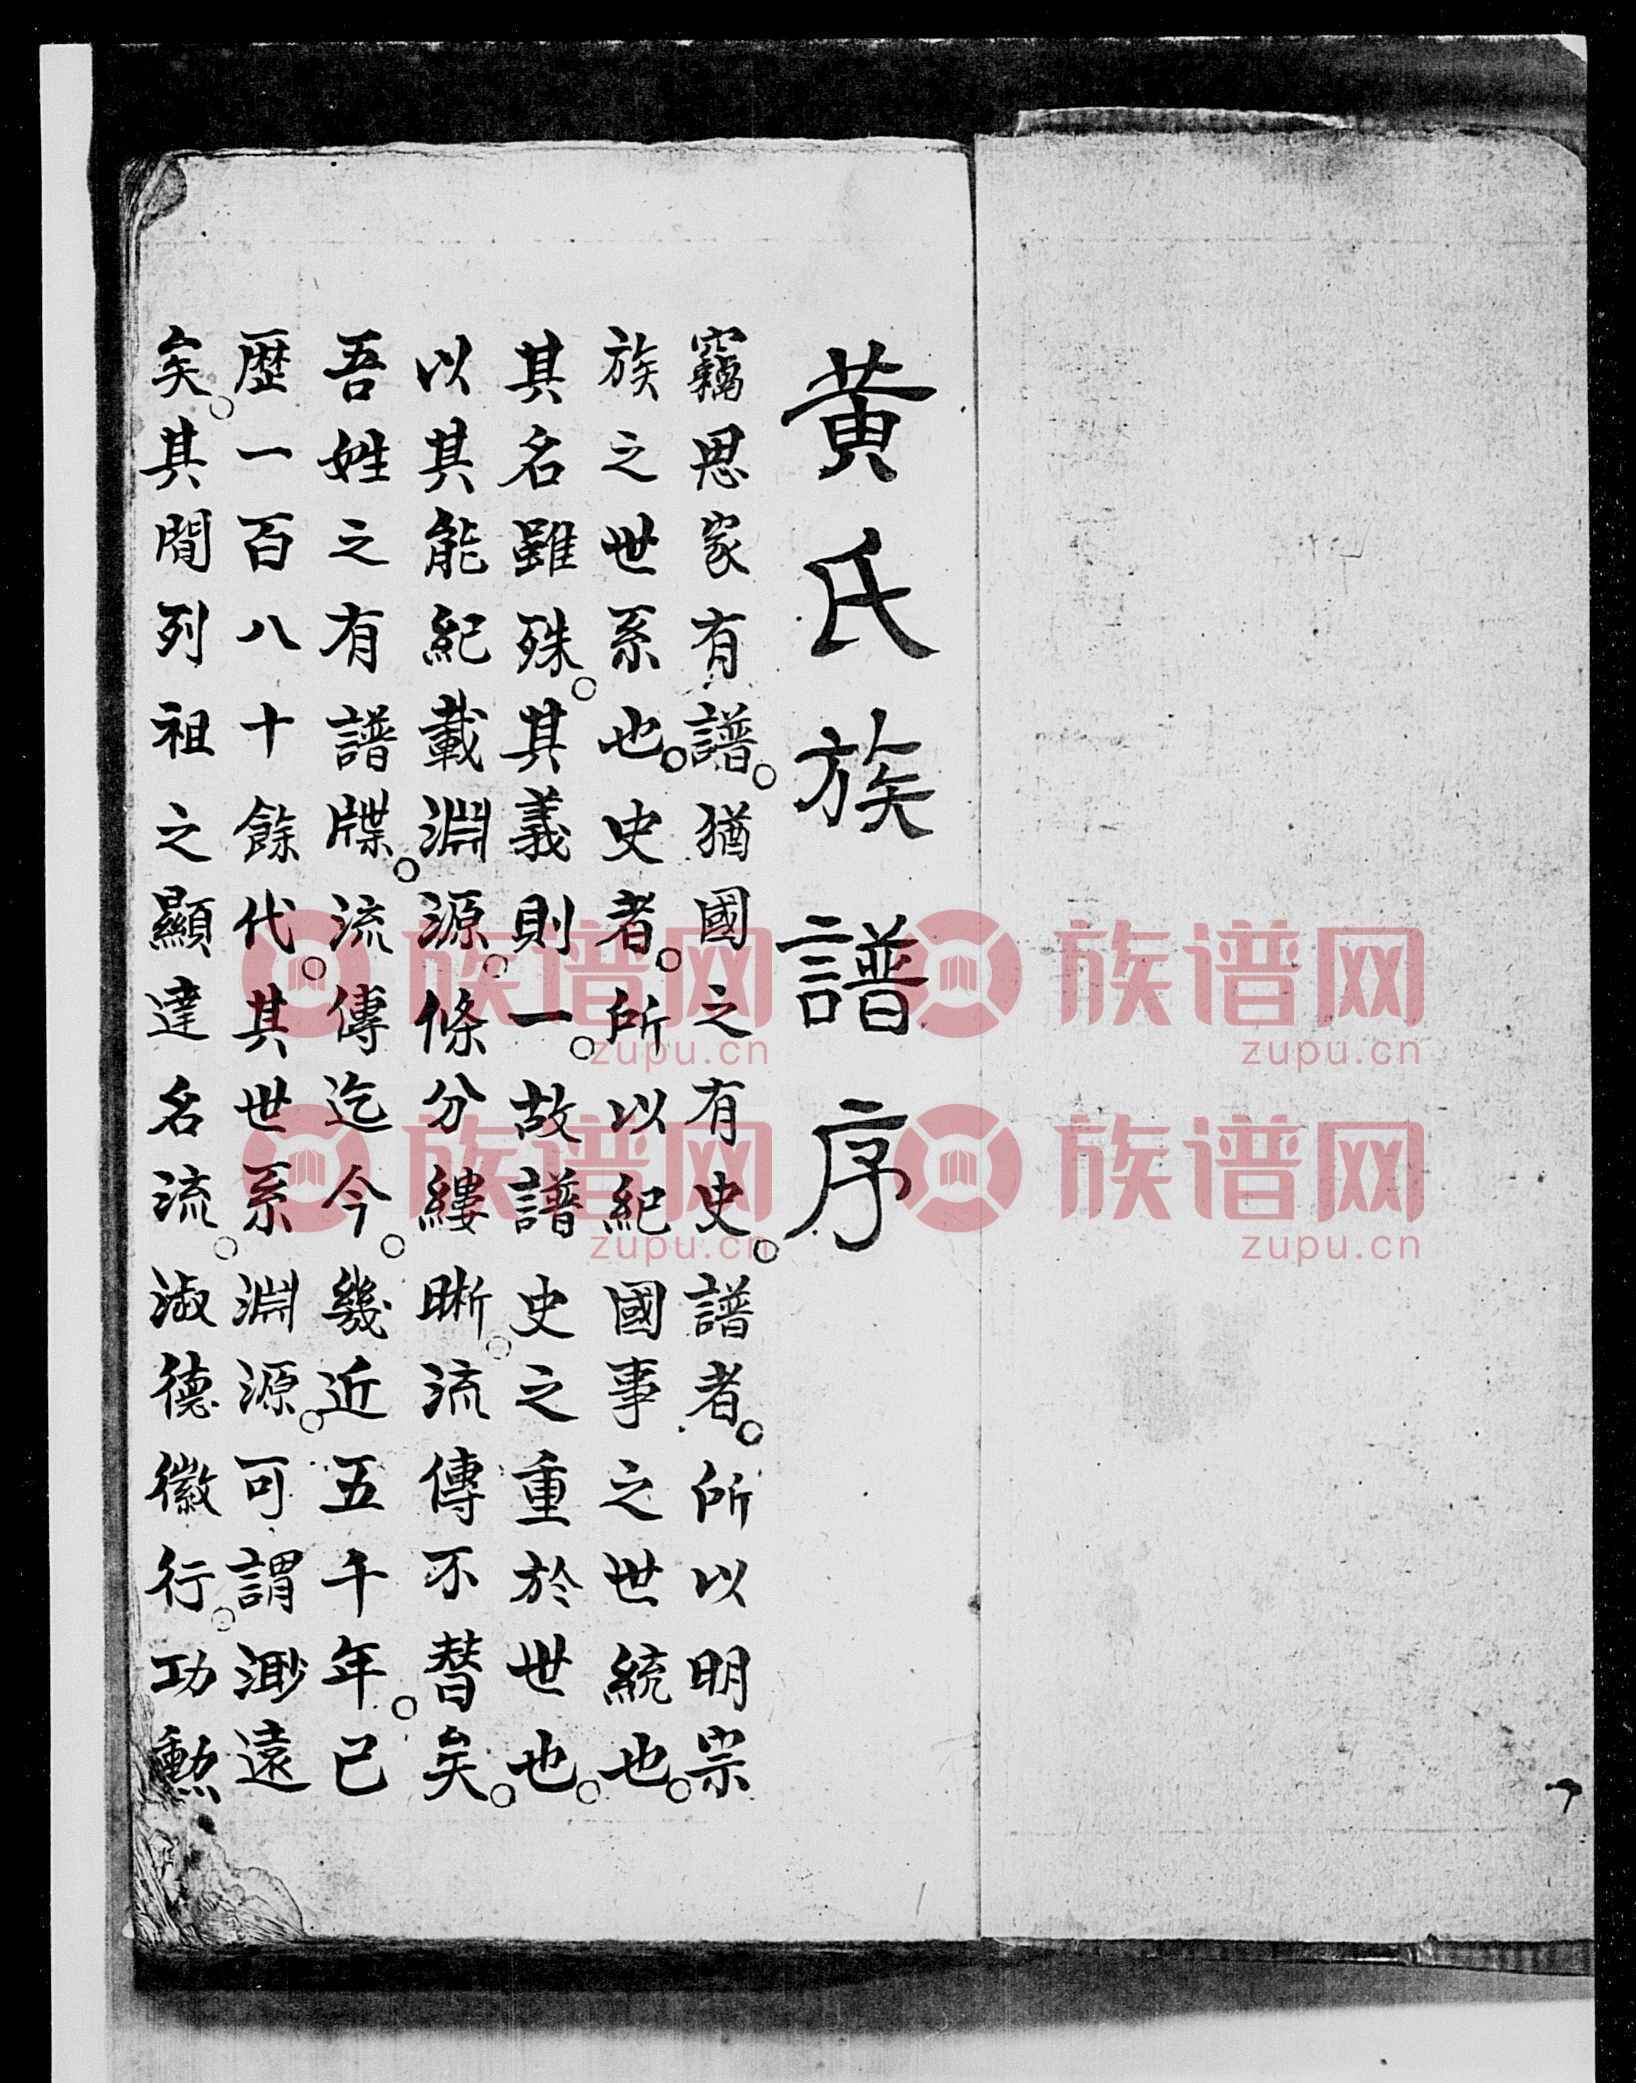 黃氏族譜序
竊思家有譜。猶國之有史。譜者。所以明宗
族之世系也。史者。所以紀國事之世統也。
其名雖殊。其義則一。故譜史之重於世也。
以其能紀載淵源。條分縷晰。流傳不替矣。
吾姓之有譜牒。流傳迄今。幾近五千年。已
歷一百八十餘代。其世系淵源。可謂渺遠
矣。其間列祖之顯達名流。淑德徽行。功勲
族谱网
zupu.cn
族谱网
zupu.cn
族谱网
zupu.cn
族谱网
zupu.cn